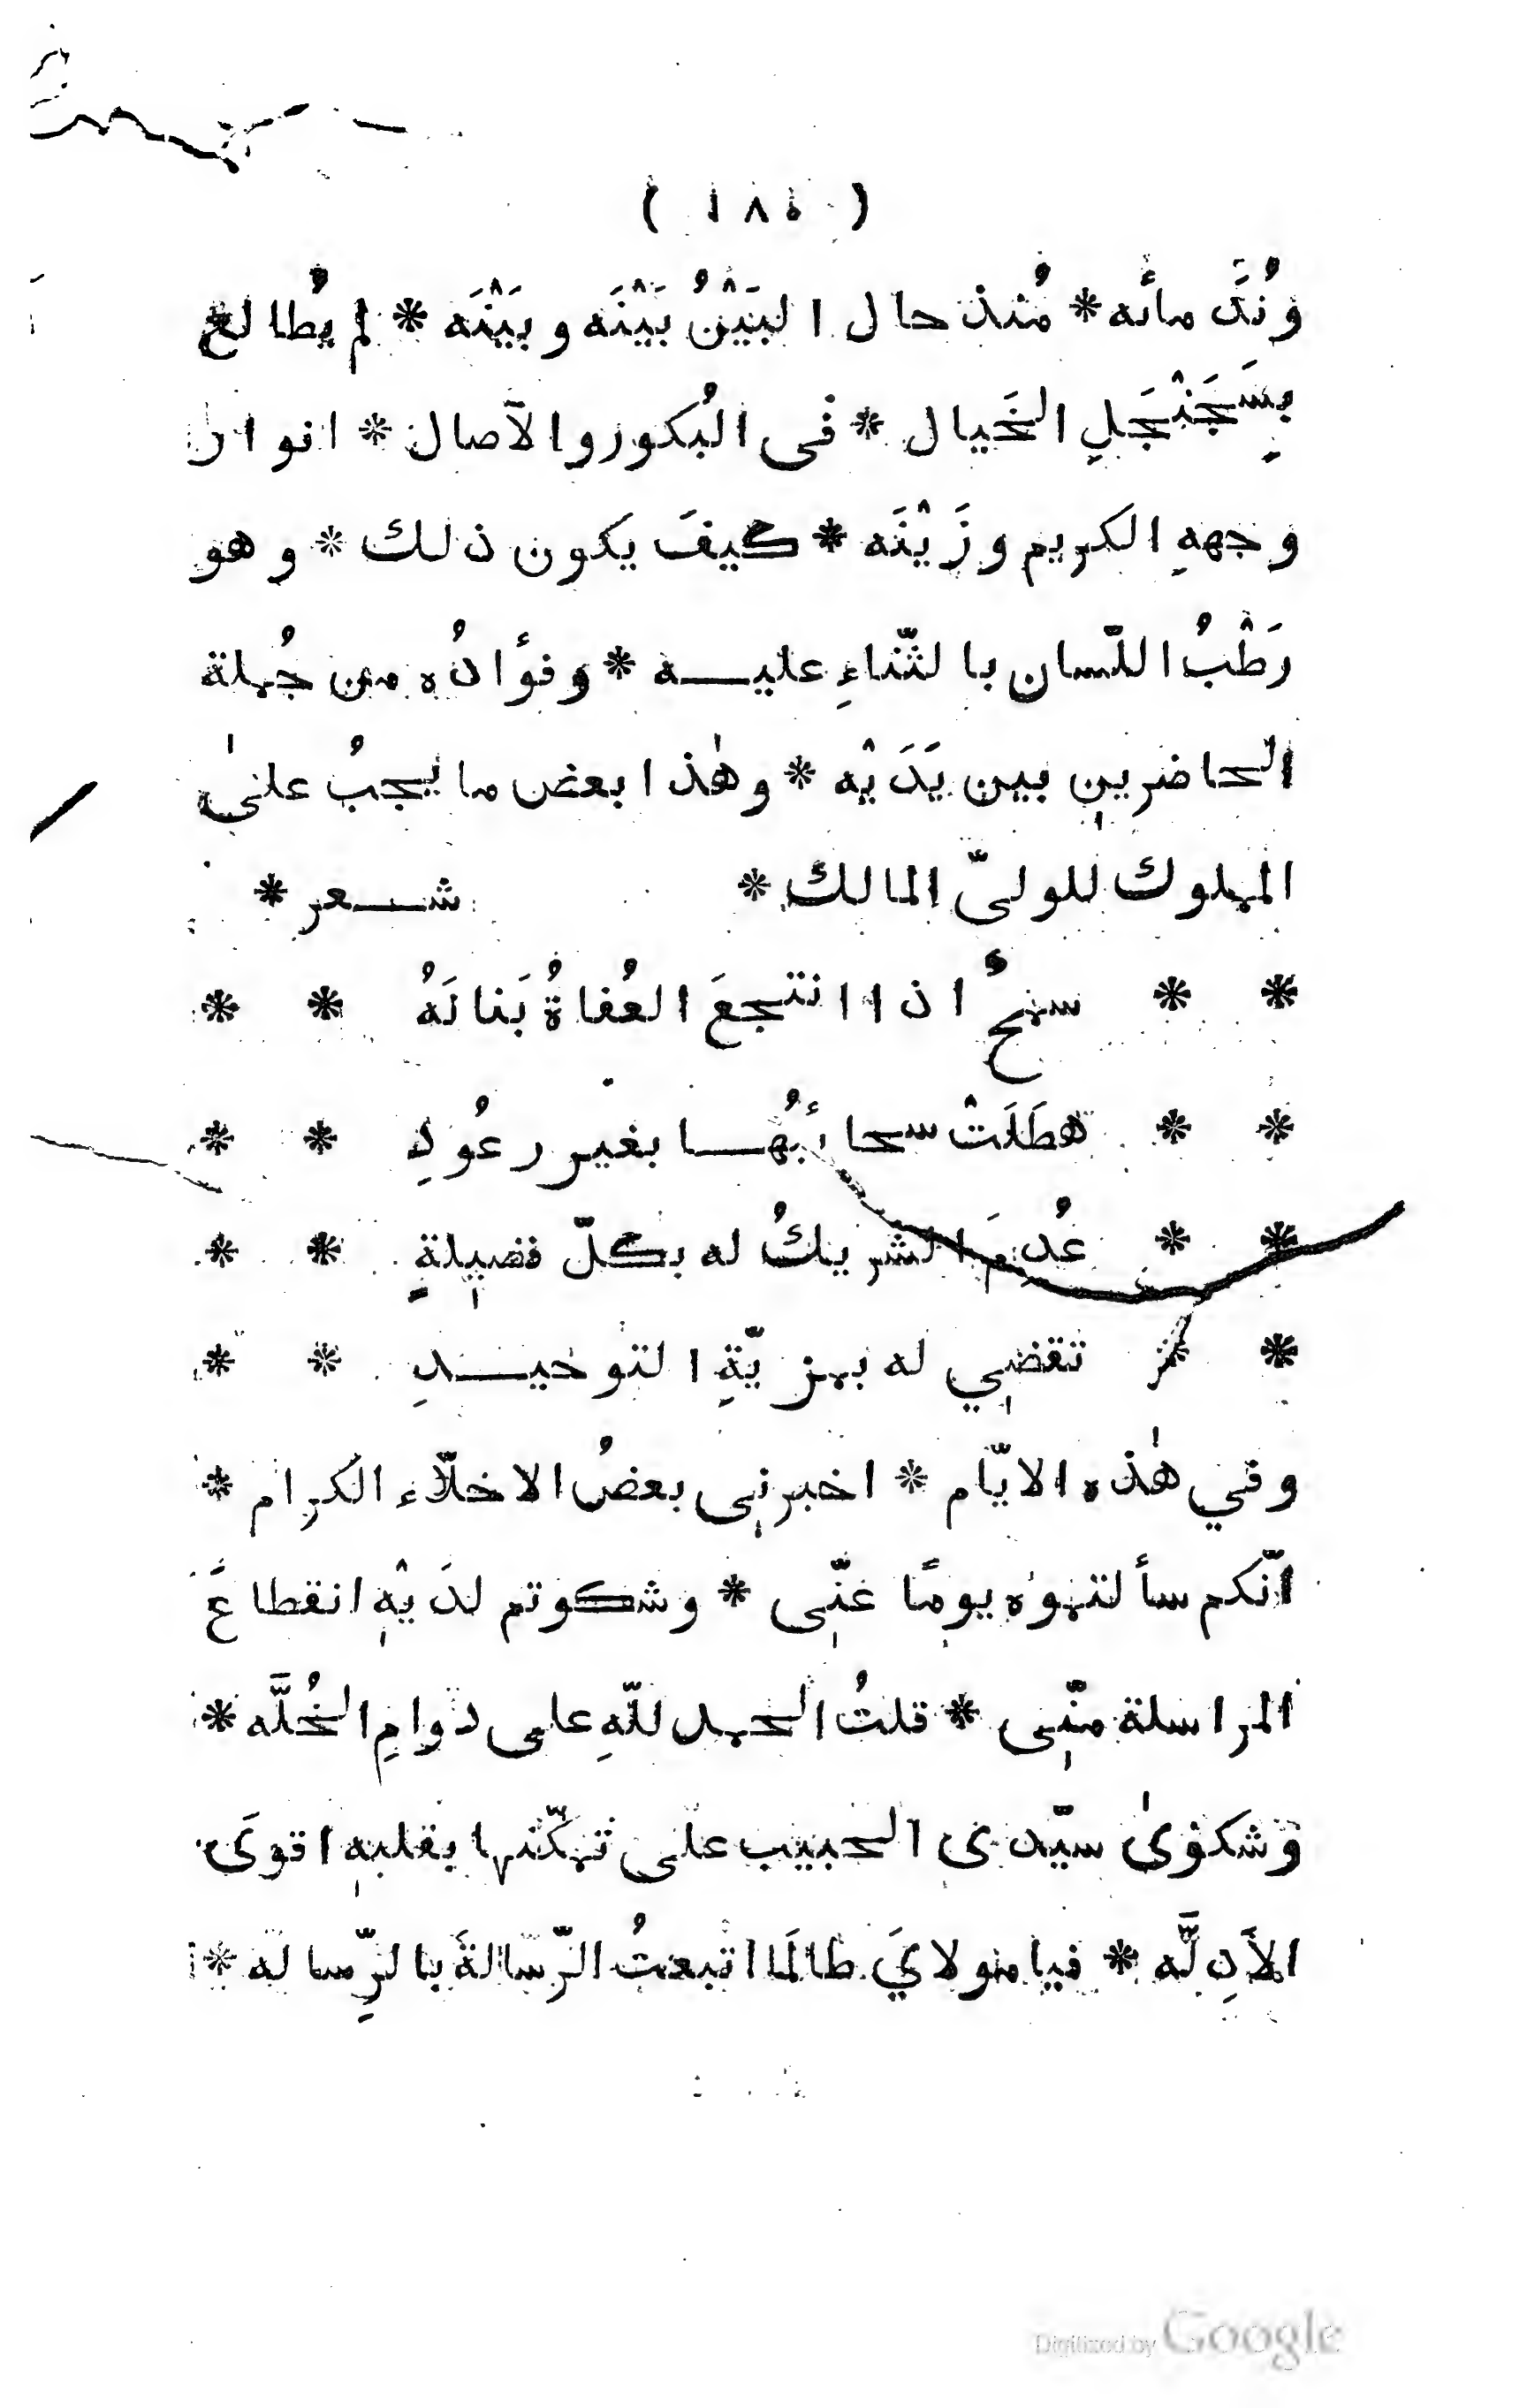 ( ١٨٥ )
ونُدَّ مائه * مُنذ حال البَيْنُ بَيْنَه وبَيْنَه * لم يُطالع
بِسَجَنْجَلِ الخَيال * فى البُكور والآصال * انوار
وجههِ الكريم وزَيْنَه * كيفَ يكون ذلك * وهو
رَطْبُ اللّسان بالثّناءِ عليـــه * وفؤادُه من جُملة
الحاضرين بين يَدَيْه * وهٰذا بعض ما يجبُ علىٰ
المملوك للولىّ المالك * شـــعر *
* * سمحٌ اذا انتجعَ العُفاةُ بَنانَهُ * *
* * هطَلَتْ سحائبُهـــا بغير رعُودِ * *
* * عُدِمَ الشريكُ له بكلّ فضيلةٍ * *
* * تقضي له بمزيّةِ التوحيـــدِ * *
وفي هٰذه الايّام * اخبرنى بعضُ الاخلّاء الكرام *
انّكم سألتموه يومًا عنّى * وشكوتم لدَيْهِ انقطاعَ
المراسلة منّى * قلتُ الحمد للّهِ على دوامِ الخُلَّه *
وشكوىٰ سيّدى الحبيب على تمكّنها بقلبه اقوىَ
الأدِلَّه * فيا مولايَ طالَما اتبعتُ الرّسالةَ بالرِّساله *
Digitized by Google